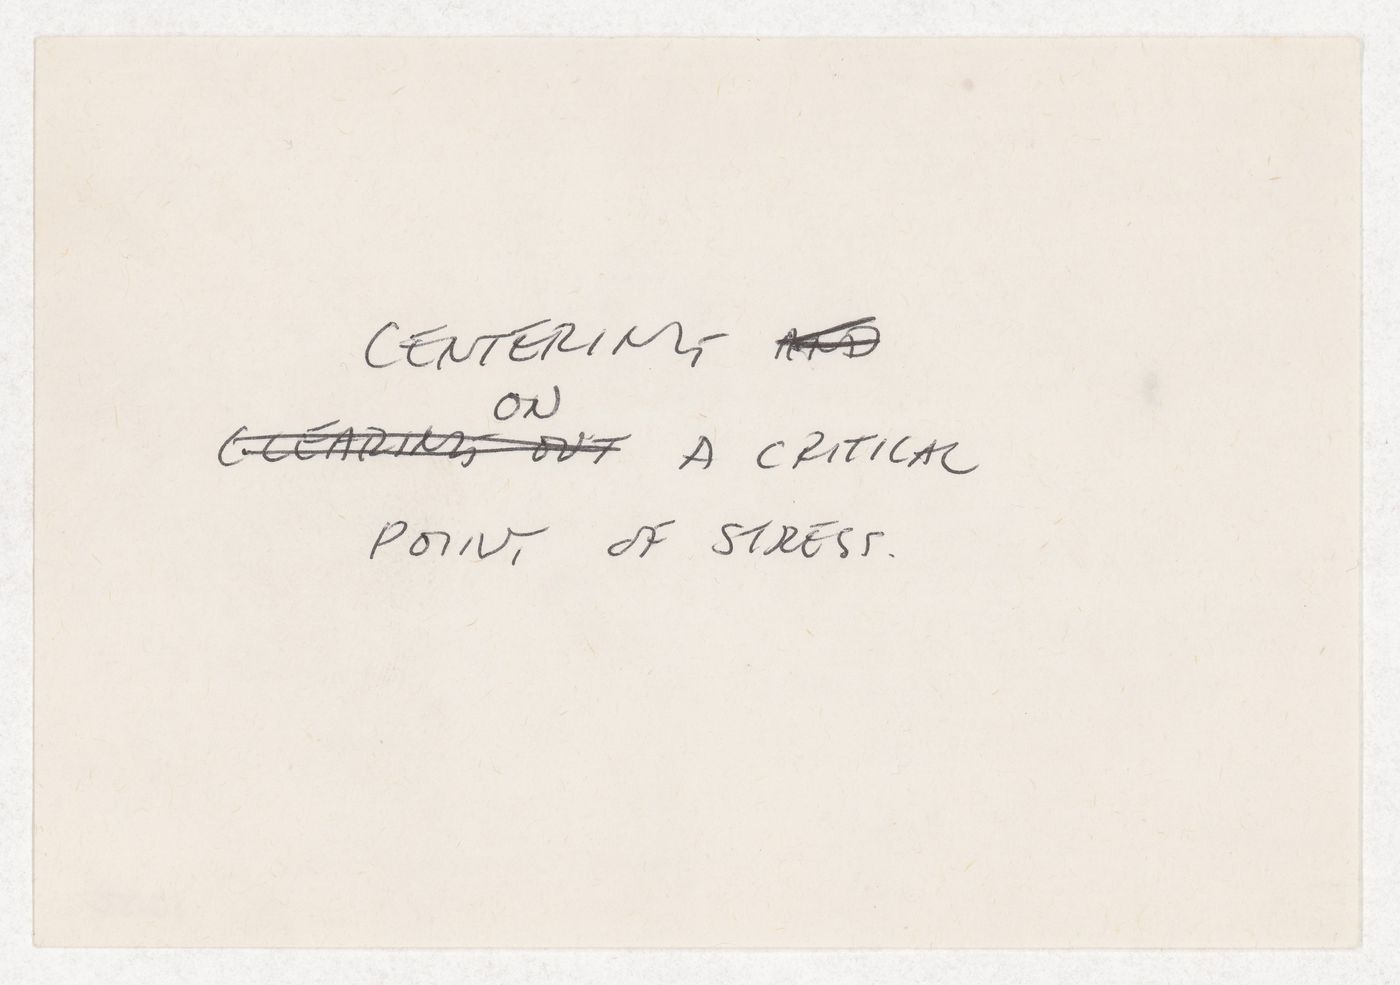 CENTERING AND
ON
CLEARING OUT A CRITICAL
POINT OF STRESS.